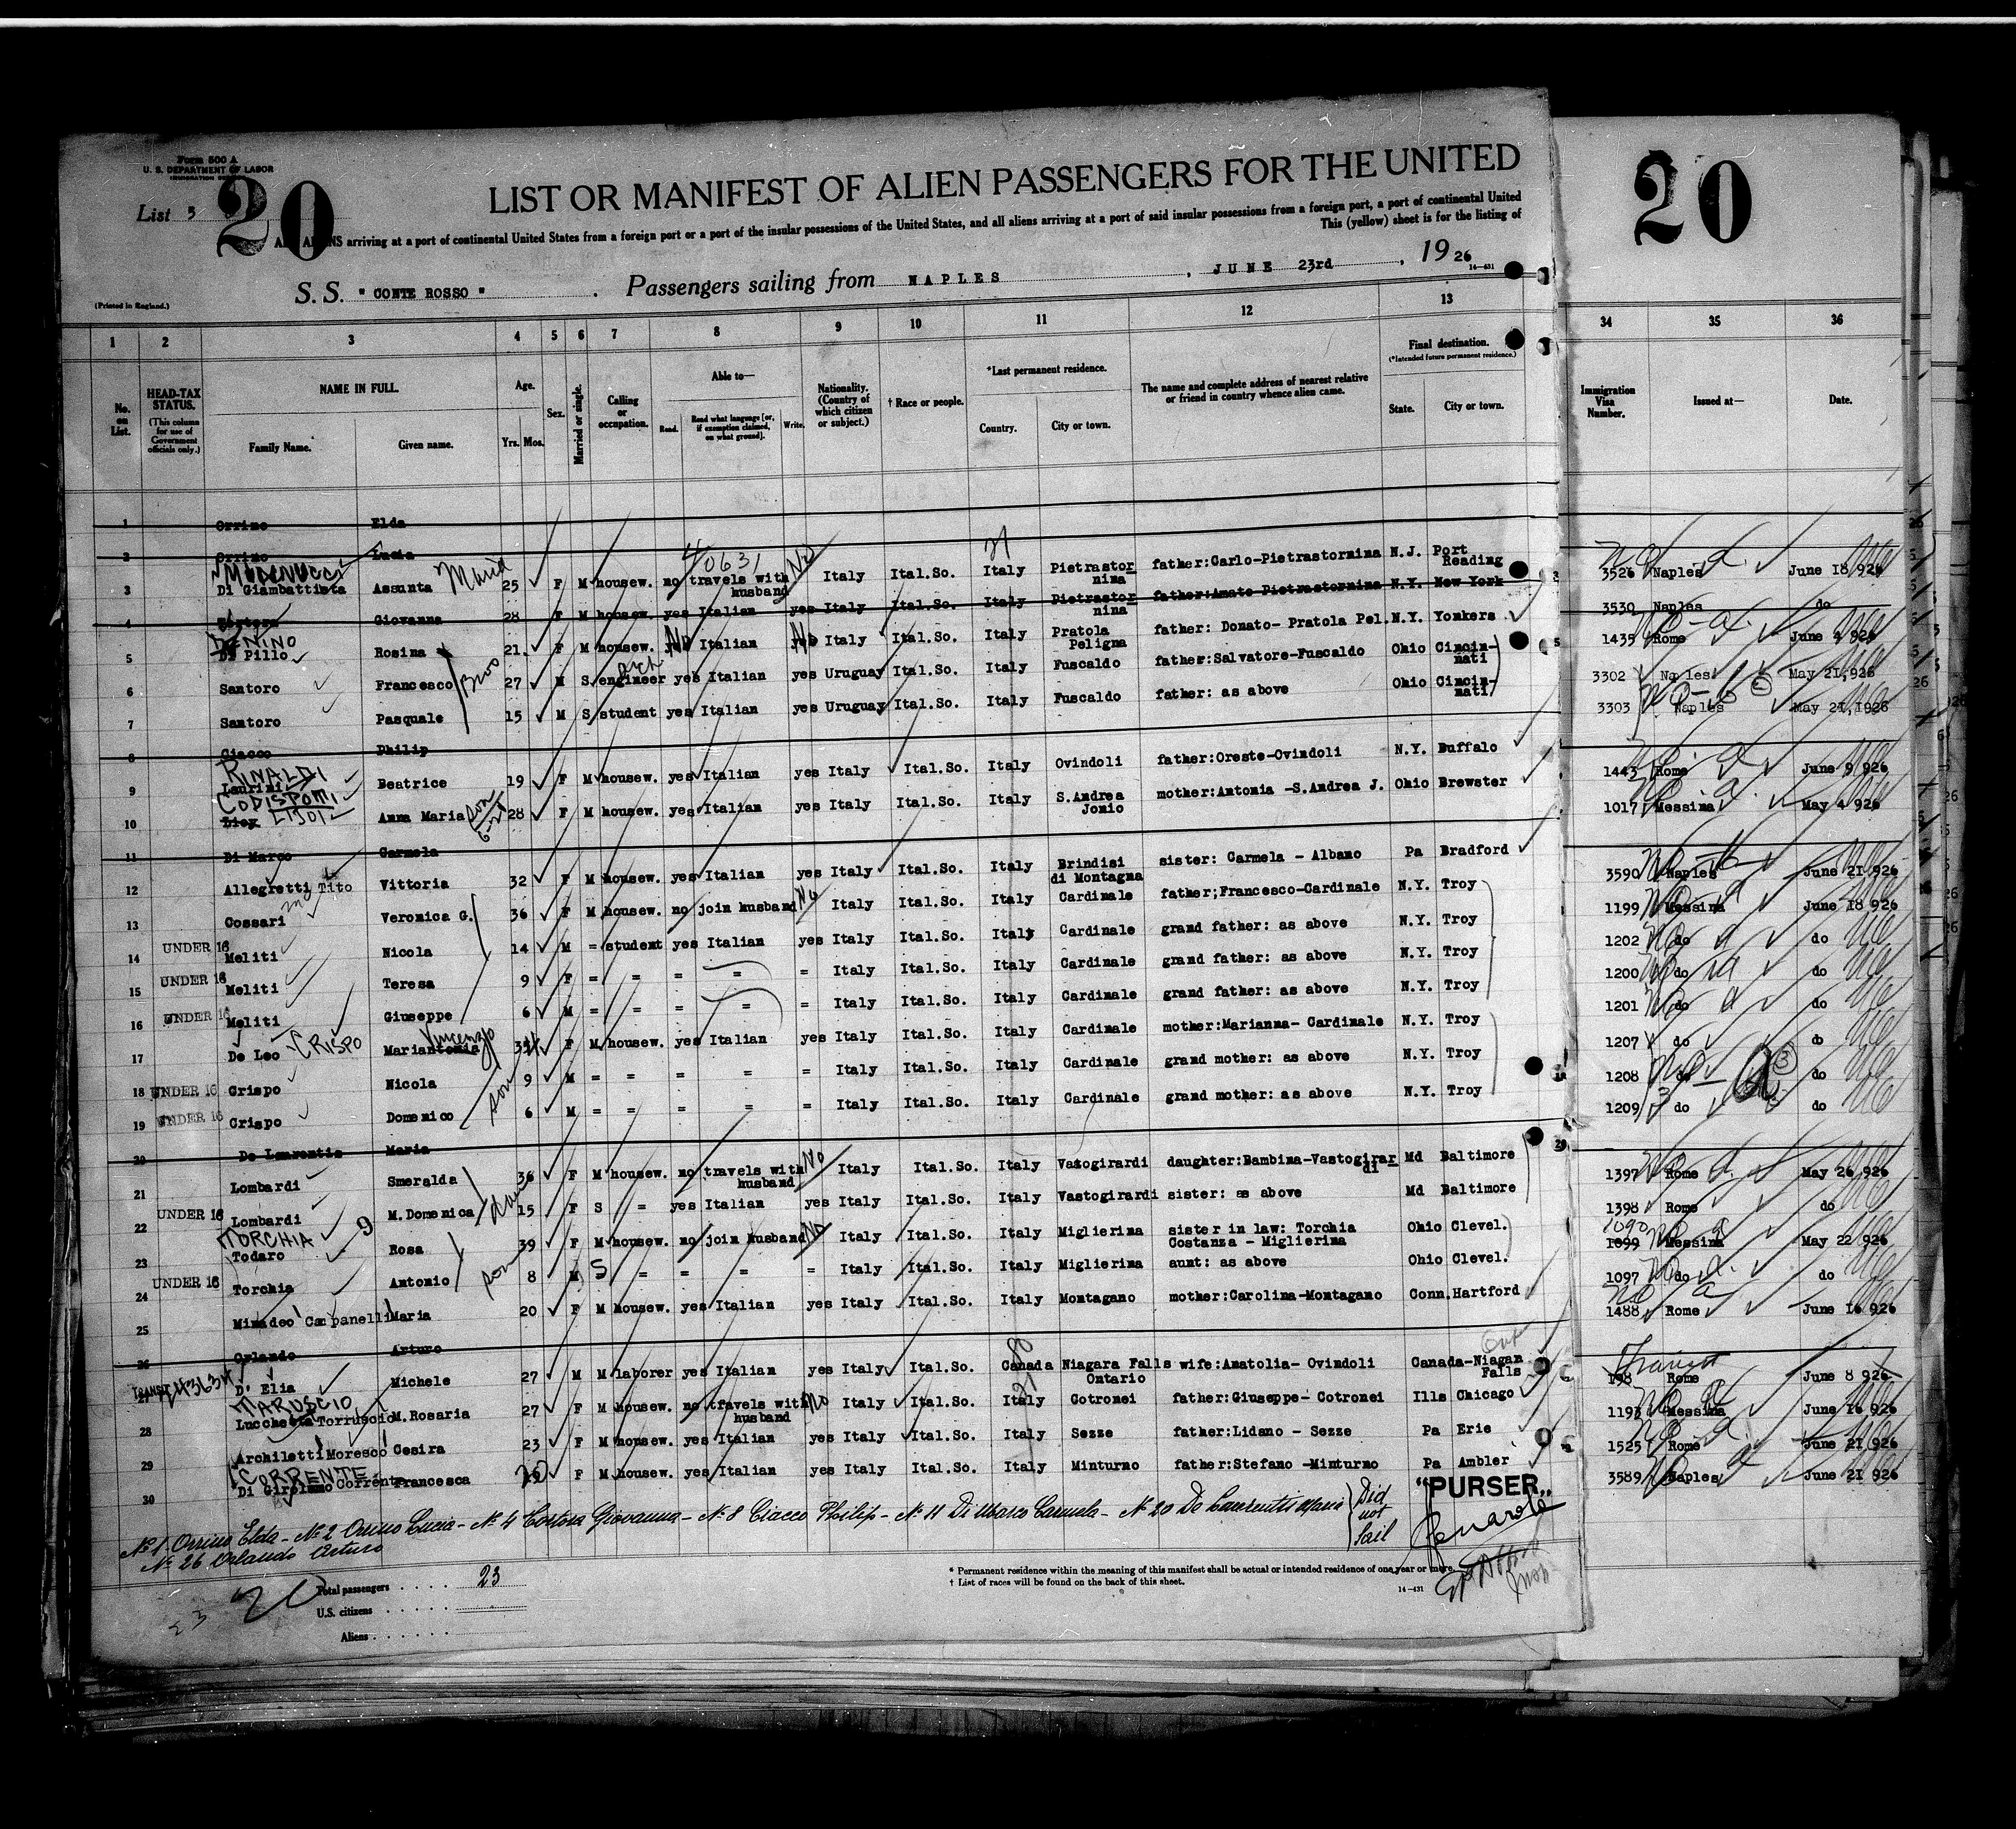 Form 500 A
U. S. DEPARTMENT OF LABOR
IMMIGRATION SERVICE
List 3
20
20
LIST OR MANIFEST OF ALIEN PASSENGERS FOR THE UNITED
ALL ALIENS arriving at a port of continental United States from a foreign port or a port of the insular possessions of the United States, and all aliens arriving at a port of said insular possessions from a foreign port, a port of continental United
This (yellow) sheet is for the listing of
S. S. " CONTE ROSSO " . Passengers sailing from NAPLES , JUNE 23rd , 1926
14-431
(Printed in England.)
1 2 3 4 5 6 7 8 9 10 11 12 13 34 35 36
No. on List.
HEAD-TAX STATUS.
(This column for use of Government officials only.)
NAME IN FULL.
Family Name. Given name.
Age.
Yrs. Mos.
Sex.
Married or single.
Calling or occupation.
Able to—
Read. Read what language [or, if exemption claimed, on what ground]. Write.
Nationality. (Country of which citizen or subject.)
† Race or people.
*Last permanent residence.
Country. City or town.
The name and complete address of nearest relative or friend in country whence alien came.
Final destination.
(*Intended future permanent residence.)
State. City or town.
Immigration Visa Number.
Issued at—
Date.
1 Orrino Elda
2 Orrino Lucia
40631
3 Di Giambattista Assunta Maria 25 F M housew. no travels with husband No Italy Ital.So. Italy Pietrastornina father:Carlo-Pietrastornina N.J. Port Reading 3526 Naples June 18 926
4 Giovanna 28 F M housew. yes Italian yes Italy Ital.So. Italy Pietrastornina father:Amato Pietrastornina N.Y. New York 3530 Naples do
DENINO
5 Di Pillo Rosina 21 F M housew. No Italian No Italy Ital.So. Italy Pratola Peligna father: Donato- Pratola Pel. N.Y. Yonkers 1435 Rome June 4 926
6 Santoro Francesco 27 M S engineer yes Italian yes Uruguay Ital.So. Italy Fuscaldo father:Salvatore-Fuscaldo Ohio Cincin-nati 3302 Naples May 21,926
7 Santoro Pasquale 15 M S student yes Italian yes Uruguay Ital.So. Italy Fuscaldo father: as above Ohio Cincin-nati 3303 Naples May 21,1926
8 Ciacco Philip
RINALDI
9 Laurini Beatrice 19 F M housew. yes Italian yes Italy Ital.So. Italy Ovindoli father:Oreste-Ovindoli N.Y. Buffalo 1443 Rome June 9 926
CODISPOTI
10 Anna Maria 28 F M housew. yes Italian yes Italy Ital.So. Italy S.Andrea Jonio mother:Antonia -S.Andrea J. Ohio Brewster 1017 Messina May 4 926
11 Di Marco Carmela
12 Allegretti Tito Vittoria 32 F M housew. yes Italian yes Italy Ital.So. Italy Brindisi di Montagna sister: Carmela - Albano Pa Bradford 3590 Naples June 21,926
13 Cossari Veronica G. 36 F M housew. no join husband No Italy Ital.So. Italy Cardinale father;Francesco-Cardinale N.Y. Troy 1199 Messina June 18 926
14 UNDER 16 Meliti Nicola 14 M = student yes Italian yes Italy Ital.So. Italy Cardinale grand father: as above N.Y. Troy 1202 do do
15 UNDER 16 Meliti Teresa 9 F = = = = = Italy Ital.So. Italy Cardinale grand father: as above N.Y. Troy 1200 do do
16 UNDER 16 Meliti Giuseppe 6 M = = = = = Italy Ital.So. Italy Cardinale grand father: as above N.Y. Troy 1201 do do
17 De Leo CRISPO Mariantonia Vincenzo F M housew. yes Italian yes Italy Ital.So. Italy Cardinale mother:Marianna- Cardinale N.Y. Troy 1207 do do
18 UNDER 16 Crispo Nicola 9 M = = = = = Italy Ital.So. Italy Cardinale grand mother: as above N.Y. Troy 1208 do do
19 UNDER 16 Crispo Domenico son 6 M = = = = = Italy Ital.So. Italy Cardinale grand mother: as above N.Y. Troy 1209 do do
20 De Laurentis Maria
21 Lombardi Smeralda 36 F M housew. no travels with husband No Italy Ital.So. Italy Vastogirardi daughter:Bambina-Vastogirardi Md Baltimore 1397 Rome May 26 926
22 UNDER 16 Lombardi M.Domenica 15 F S = yes Italian yes Italy Ital.So. Italy Vastogirardi sister: as above Md Baltimore 1398 Rome do
TORCHIA 9
23 Todaro Rosa 39 F M housew. no join husband No Italy Ital.So. Italy Miglierina sister in law: Torchia Costanza - Miglierina Ohio Clevel. 1090 1099 Messina May 22 926
24 UNDER 16 Torchia Antonio son 8 M S = = = = Italy Ital.So. Italy Miglierina aunt: as above Ohio Clevel. 1097 do do
25 Mimadeo Campanelli Maria 20 F M housew. yes Italian yes Italy Ital.So. Italy Montagano mother:Carolina-Montagano Conn. Hartford 1488 Rome June 16 926
26 Orlando Arturo
27 TRANSIT D' Elia Michele 27 M M laborer yes Italian yes Italy Ital.So. Canada Niagara Falls Ontario wife:Amatolia- Ovindoli Canada-Niagan Falls Transit 198 Rome June 8 926
TARUSCIO
28 Lucchetta Torruscio M.Rosaria 27 F M housew. no travels with husband No Italy Ital.So. Italy Cotronei father:Giuseppe- Cotronei Ills Chicago 1193 Messina June 16 926
29 Archiletti Moresco Cesira 23 F M housew. yes Italian yes Italy Ital.So. Italy Sezze father:Lidano - Sezze Pa Erie 1525 Rome June 21 926
CORRENTE
30 Di Girolamo Corrente Francesca 20 F M housew. yes Italian yes Italy Ital.So. Italy Minturno father:Stefano -Minturno Pa Ambler 3589 Naples June 21 926
"PURSER"
No 1 Orrino Elda - No 2 Orrino Lucia - No 4 Giovanna - No 8 Ciacco Philip - No 11 Di Marco Carmela - No 20 De Laurentis Maria Did not Sail
No 26 Orlando Arturo
23 20
Total passengers . . . . . 23
U.S. citizens . . . . . .
Aliens . . . . . .
* Permanent residence within the meaning of this manifest shall be actual or intended residence of one year or more.
† List of races will be found on the back of this sheet.
14-431